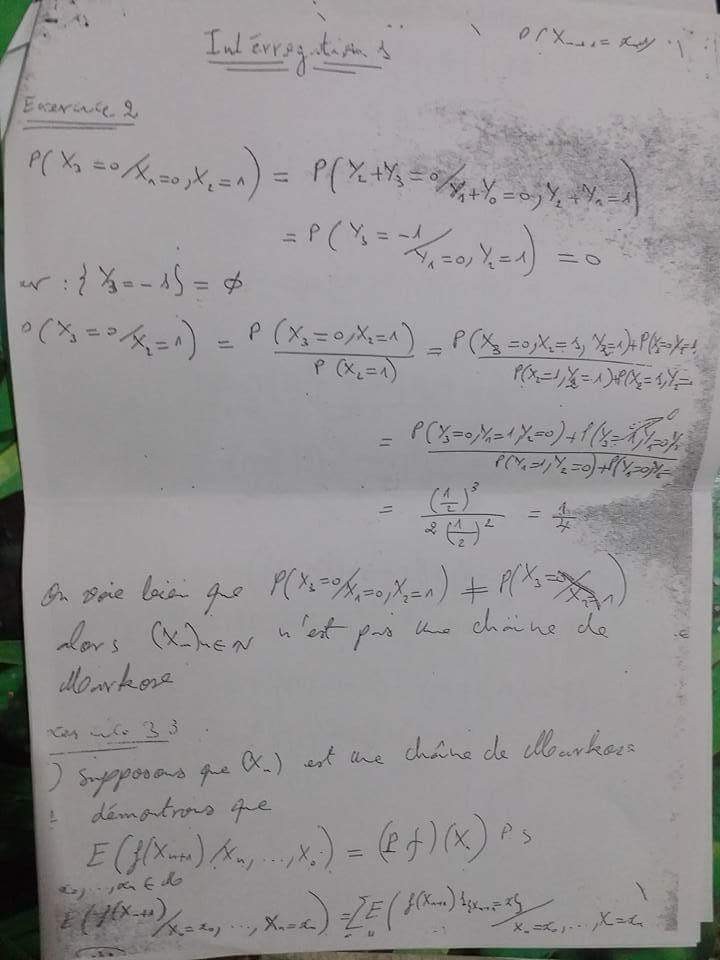 Intérrogation 1
P(X_{n+1} = x_{n+1}
Exercice 2
P(X_3 = 0 / X_1 = 0, X_2 = 1) = P(Y_2 + Y_3 = 0 / Y_1 + Y_0 = 0, Y_2 + Y_1 = 1)
= P(Y_3 = -1 / Y_1 = 0, Y_2 = 1) = 0
car : {Y_3 = -1} = ∅
P(X_3 = 0 / X_2 = 1) = P(X_3 = 0, X_2 = 1) / P(X_2 = 1) = P(X_3 = 0, X_2 = 1, Y_2 = 1) + P(X_3 = 0 X_2 = 1 / P(X_2 = 1, Y_2 = 1) + P(X_2 = 1, Y_2 =
= P(Y_3 = 0, Y_1 = 1, Y_2 = 0) + P(Y_3 = -1, Y_1 = 0, Y_2 / P(Y_1 = 1, Y_2 = 0) + P(Y_1 = 0, Y_2 =
= (1/2)^3 / 2 (1/2)^2 = 1/4
On voie bien que P(X_3 = 0 / X_1 = 0, X_2 = 1) ≠ P(X_3 = 0 / X_2 = 1)
alors (X_n)_{n∈N} n'est pas une chaîne de
Markove
3
) Supposons que (X_n) est une chaîne de Markove
démontrons que
E(f(X_{n+1}) / X_n, ..., X_0) = (P f)(X_n) P s
x_0, ..., x_n ∈
E(f(X_{n+1}) / X_0 = x_0, ..., X_n = x_n) = Σ E(f(X_{n+1}) 1_{X_{n+1} = x} / X_0 = x_0, ..., X_n = x_n